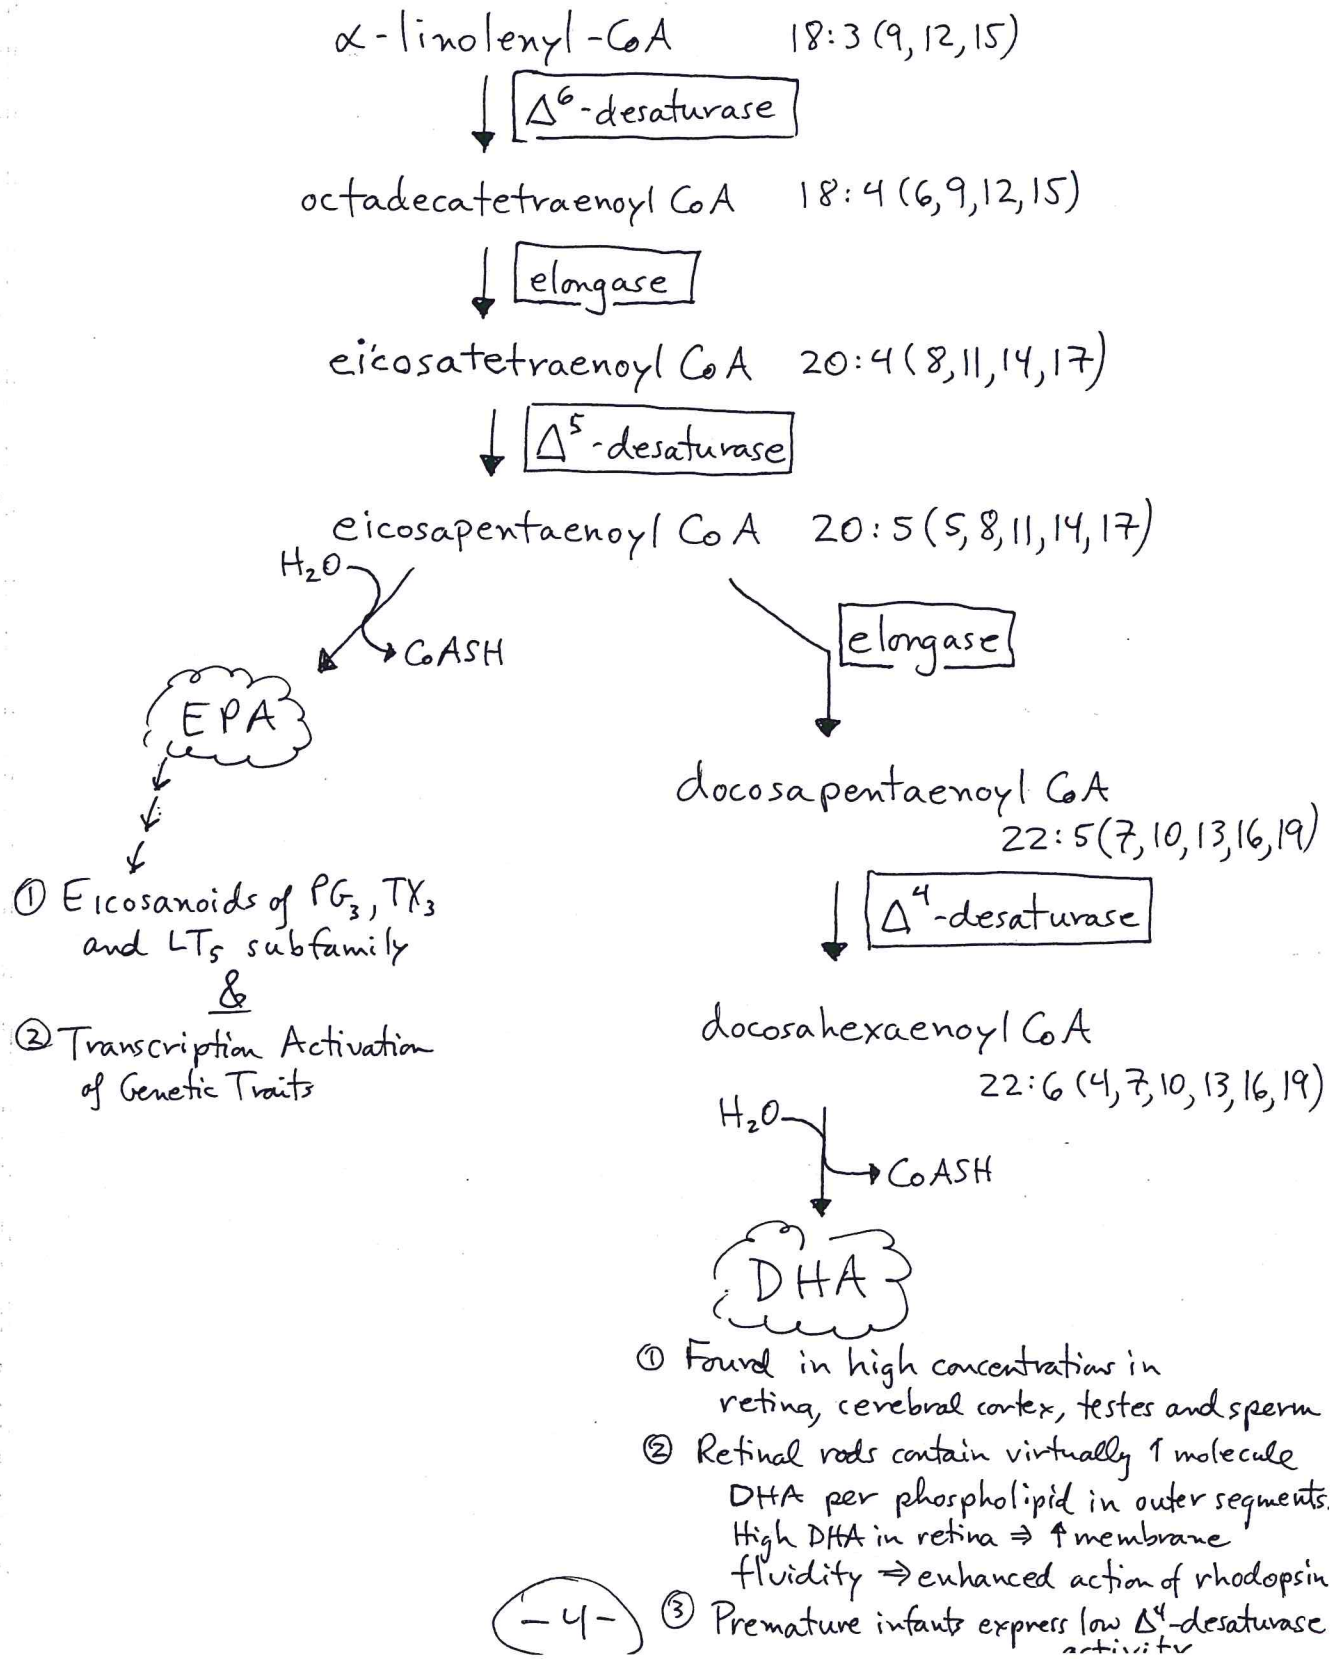 α-linolenyl-CoA 18:3 (9,12,15)
Δ⁶-desaturase
octadecatetraenoyl CoA 18:4 (6,9,12,15)
elongase
eicosatetraenoyl CoA 20:4 (8,11,14,17)
Δ⁵-desaturase
eicosapentaenoyl CoA 20:5 (5,8,11,14,17)
H₂O
CoASH
elongase
EPA
docosapentaenoyl CoA
22:5 (7,10,13,16,19)
① Eicosanoids of PG₃, TX₃
and LT₅ subfamily
&
② Transcription Activation
of Genetic Traits
Δ⁴-desaturase
docosahexaenoyl CoA
22:6 (4,7,10,13,16,19)
H₂O
CoASH
DHA
① Found in high concentrations in
retina, cerebral cortex, testes and sperm
② Retinal rods contain virtually 1 molecule
DHA per phospholipid in outer segments.
High DHA in retina ⇒ ↑ membrane
fluidity ⇒ enhanced action of rhodopsin
③ Premature infants express low Δ⁴-desaturase
activity
-4-